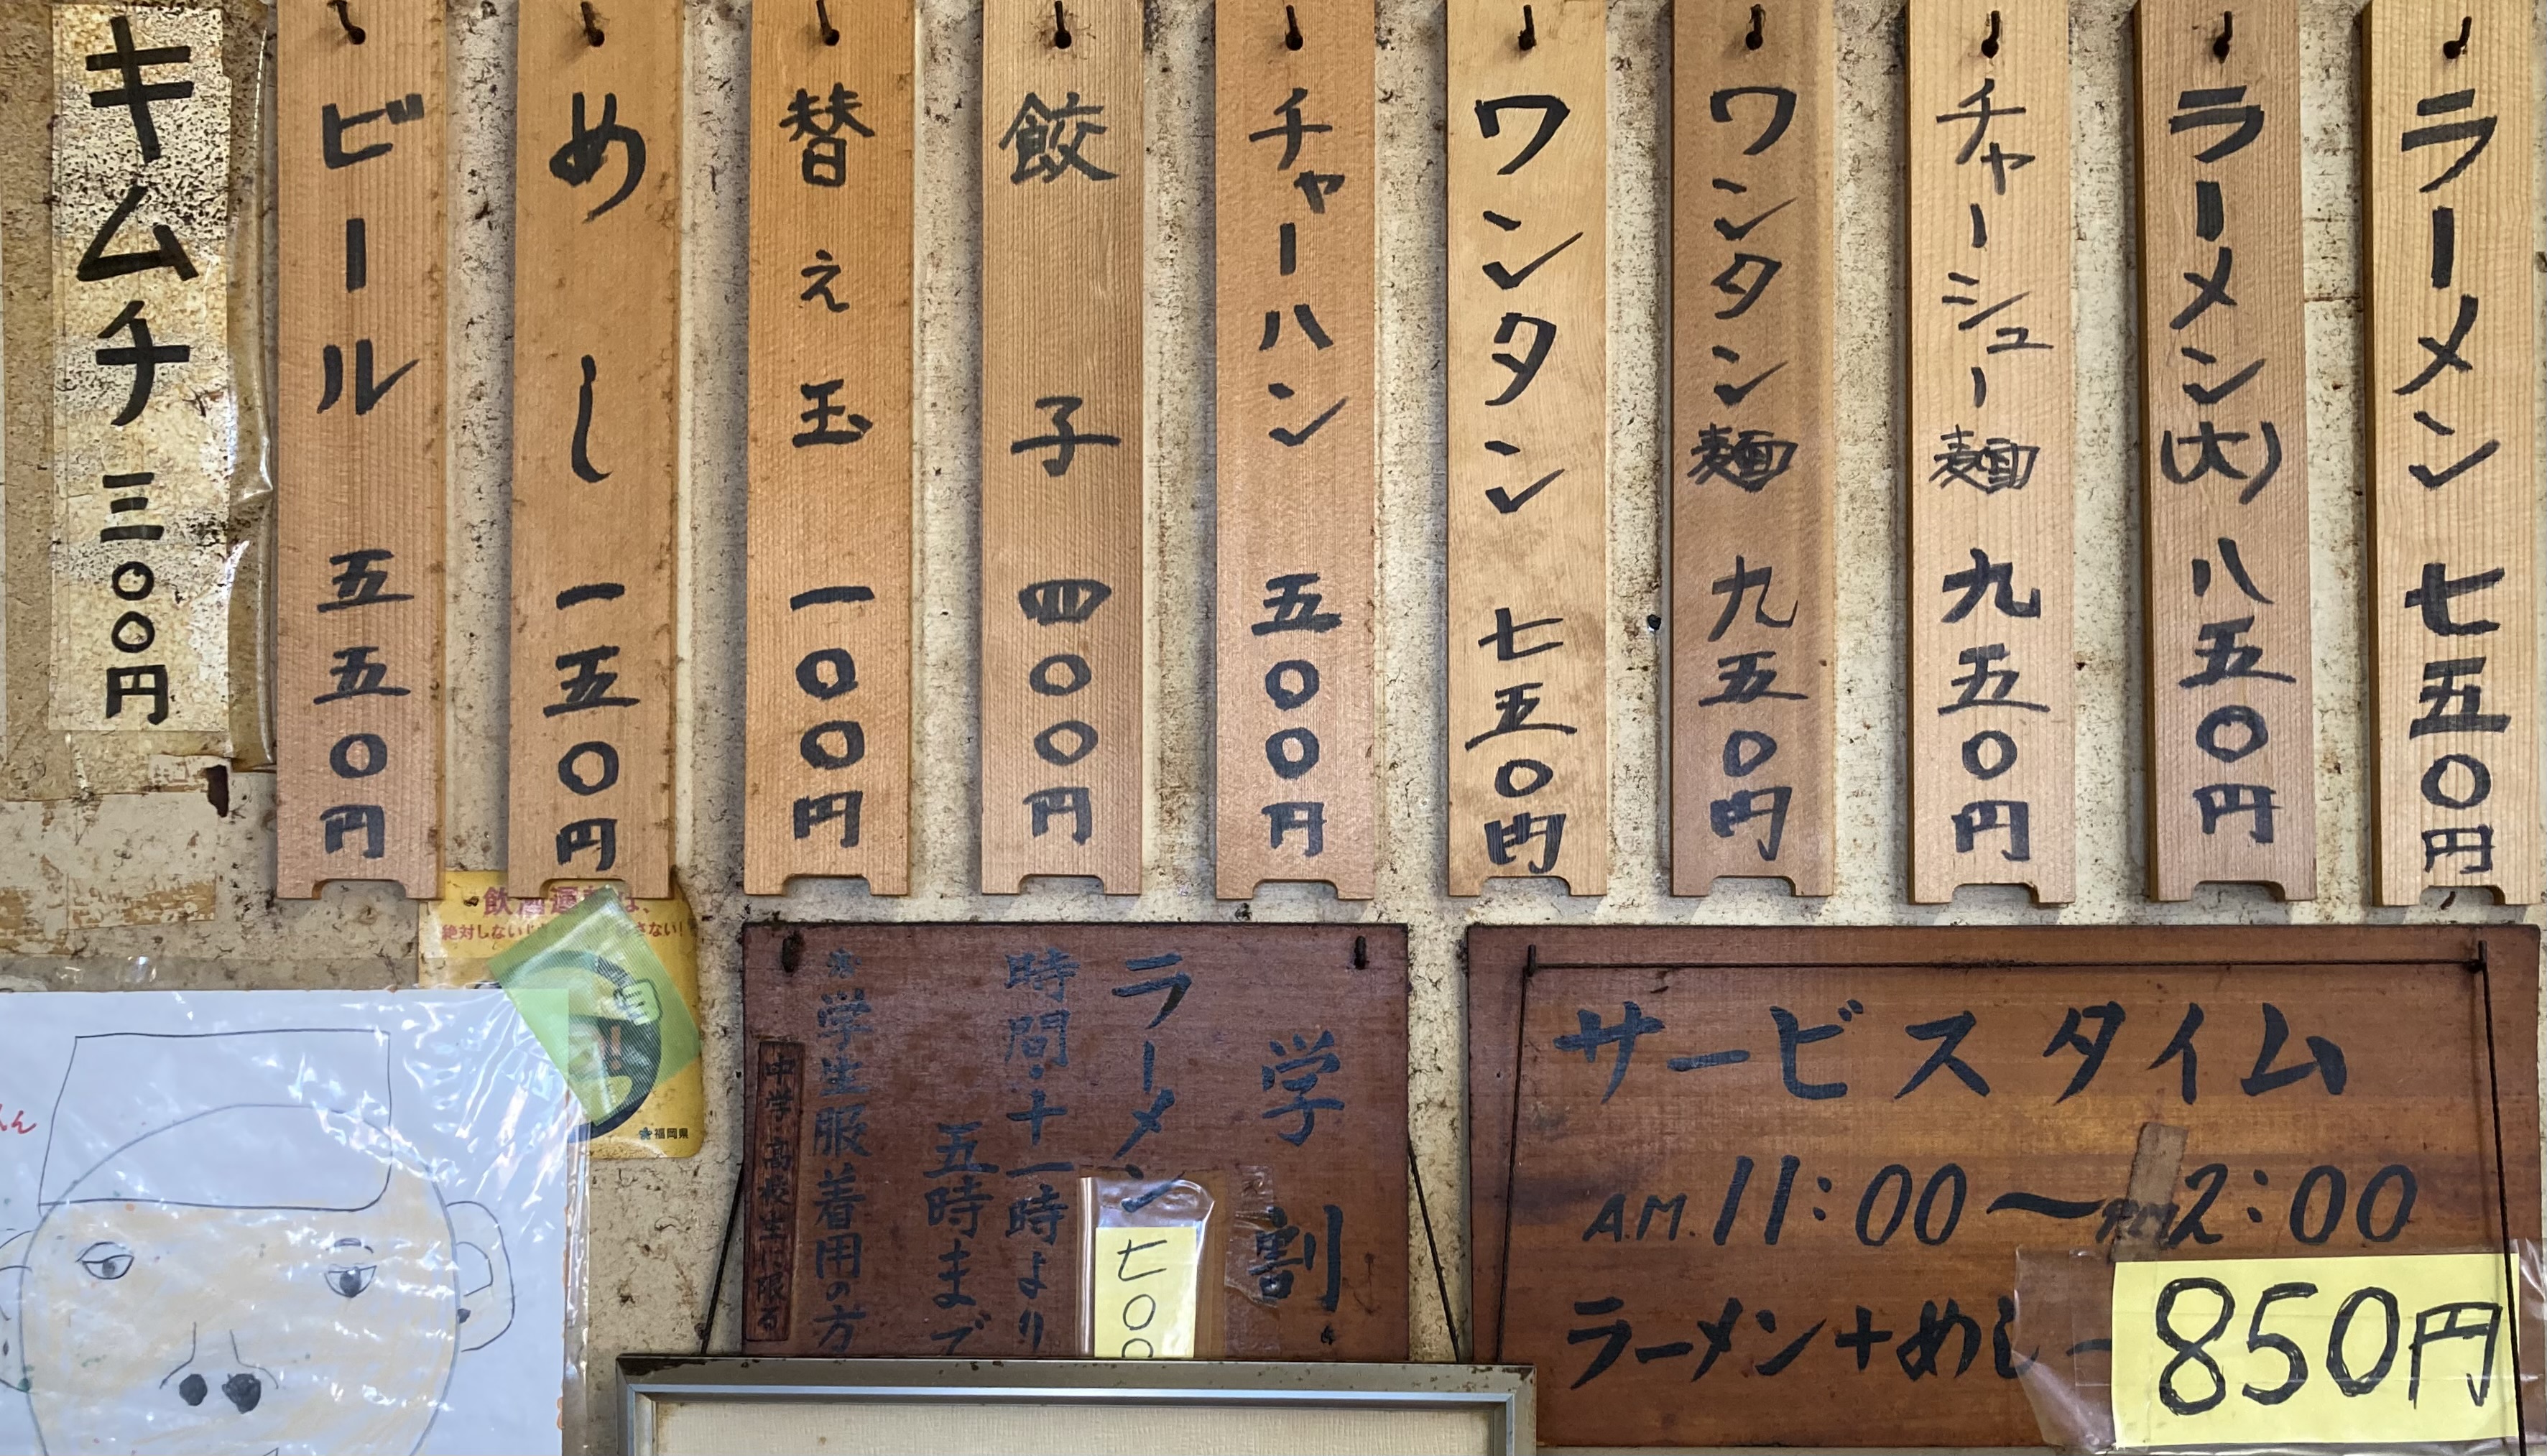 ラーメン 七五〇円
ラーメン(大) 八五〇円
チャーシュー麺 九五〇円
ワンタン麺 九五〇円
ワンタン 七五〇円
チャーハン 五〇〇円
餃子 四〇〇円
替え玉 一〇〇円
めし 一五〇円
ビール 五五〇円
キムチ 三〇〇円
サービスタイム
A.M. 11:00〜PM2:00
ラーメン+めし
850円
学割
ラーメン 七〇〇
時間・十一時より
五時まで
※学生服着用の方
中学高校生に限る
飲酒運
絶対しない
さない!
福岡県